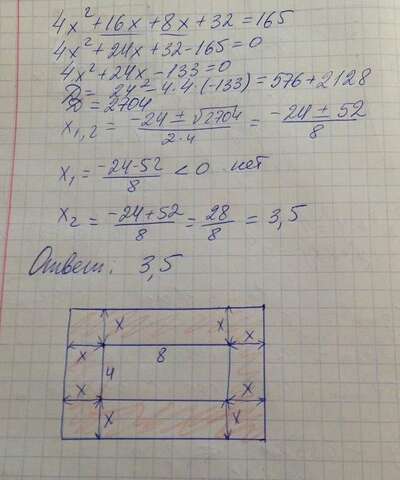 4x² + 16x + 8x + 32 = 165
4x² + 24x + 32 - 165 = 0
4x² + 24x - 133 = 0
D = 24² - 4·4·(-133) = 576 + 2128
D = 2704
x₁,₂ = (-24 ± √2704)/(2·4) = (-24 ± 52)/8
x₁ = (-24-52)/8 < 0 нет
x₂ = (-24+52)/8 = 28/8 = 3,5
Ответ: 3,5
x x
x 8 x
4
x x
x x